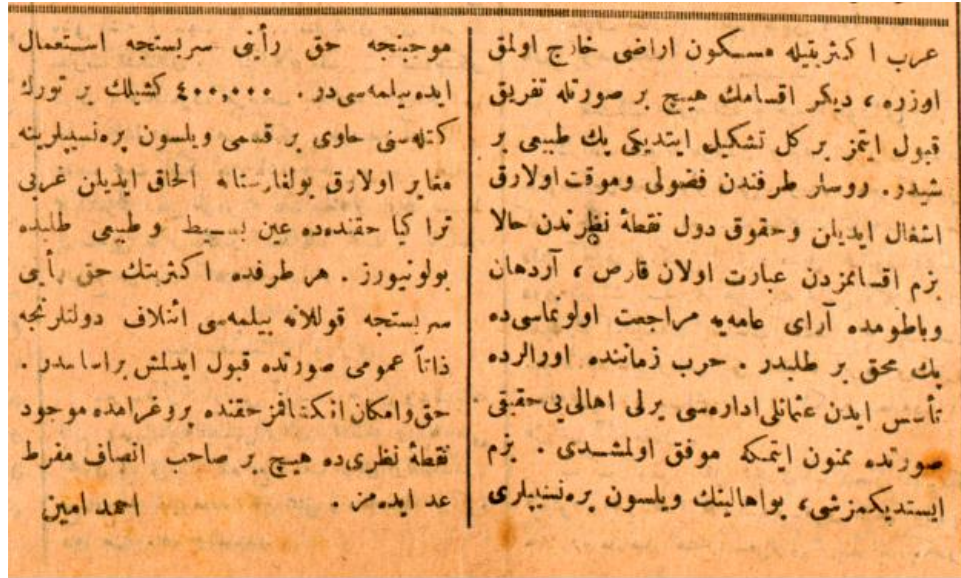 عرب اكثریتیله مسكون اراضی خارج اولمق
اوزره ، دیكر اقسامك هیچ بر صورتله تفریق
قبول ایتمز بر كل تشكیل ایتدیكی پك طبیعی بر
شیدر. روسلر طرفندن فضولی وموقت اولارق
اشغال ایدیلن وحقوق دول نقطۀ نظرندن حالا
بزم اقسامزدن عبارت اولان قارص ، آردهان
وباطومده آرای عامه‌یه مراجعت اولونماسی‌ده
پك محق بر طلبدر . حرب زماننده اورالرده
تأسس ایدن عثمانلی اداره‌سی یرلی اهالی‌یی حقیقی
صورتده ممنون ایتمكه موفق اولمشدی . بزم
ایستدیكمز شی، بو اهالینك ویلسون پره‌نسیپلری
موجبنجه حق رأینی سربستجه استعمال
ایده‌بیلمه‌سی‌در . ٤٠٠,٠٠٠ كشیلك بر تورك
كتله‌سنی حاوی بر قسمی ویلسون پره‌نسیپلرینه
مغایر اولارق بولغارستانه الحاق ایدیلن غربی
تراكیا حقنده‌ده عین بسیط و طبیعی طلبده
بولونیورز . هر طرفده اكثریتك حق رأیی
سربستجه قوللانه بیلمه‌سی ائتلاف دولتلرنجه
ذاتاً عمومی صورتده قبول ایدلمش براساسدر .
حق وامكان انكشافمز حقنده پروغرامده موجود
نقطۀ نظری‌ده هیچ بر صاحب انصاف مفرط
عد ایده‌مز . احمد امین